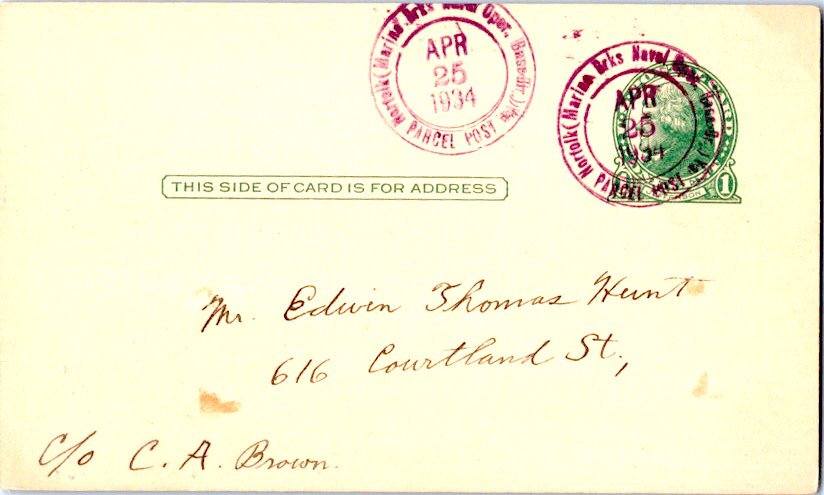 Norfolk (Marine Brks Naval Oper. Base Br.) Va.
APR
25
1934
PARCEL POST
Norfolk (Marine Brks Naval Oper. Base Br.) Va.
APR
25
1934
PARCEL POST
1
THIS SIDE OF CARD IS FOR ADDRESS
Mr. Edwin Thomas Hunt
616 Courtland St.,
c/o C. A. Brown.